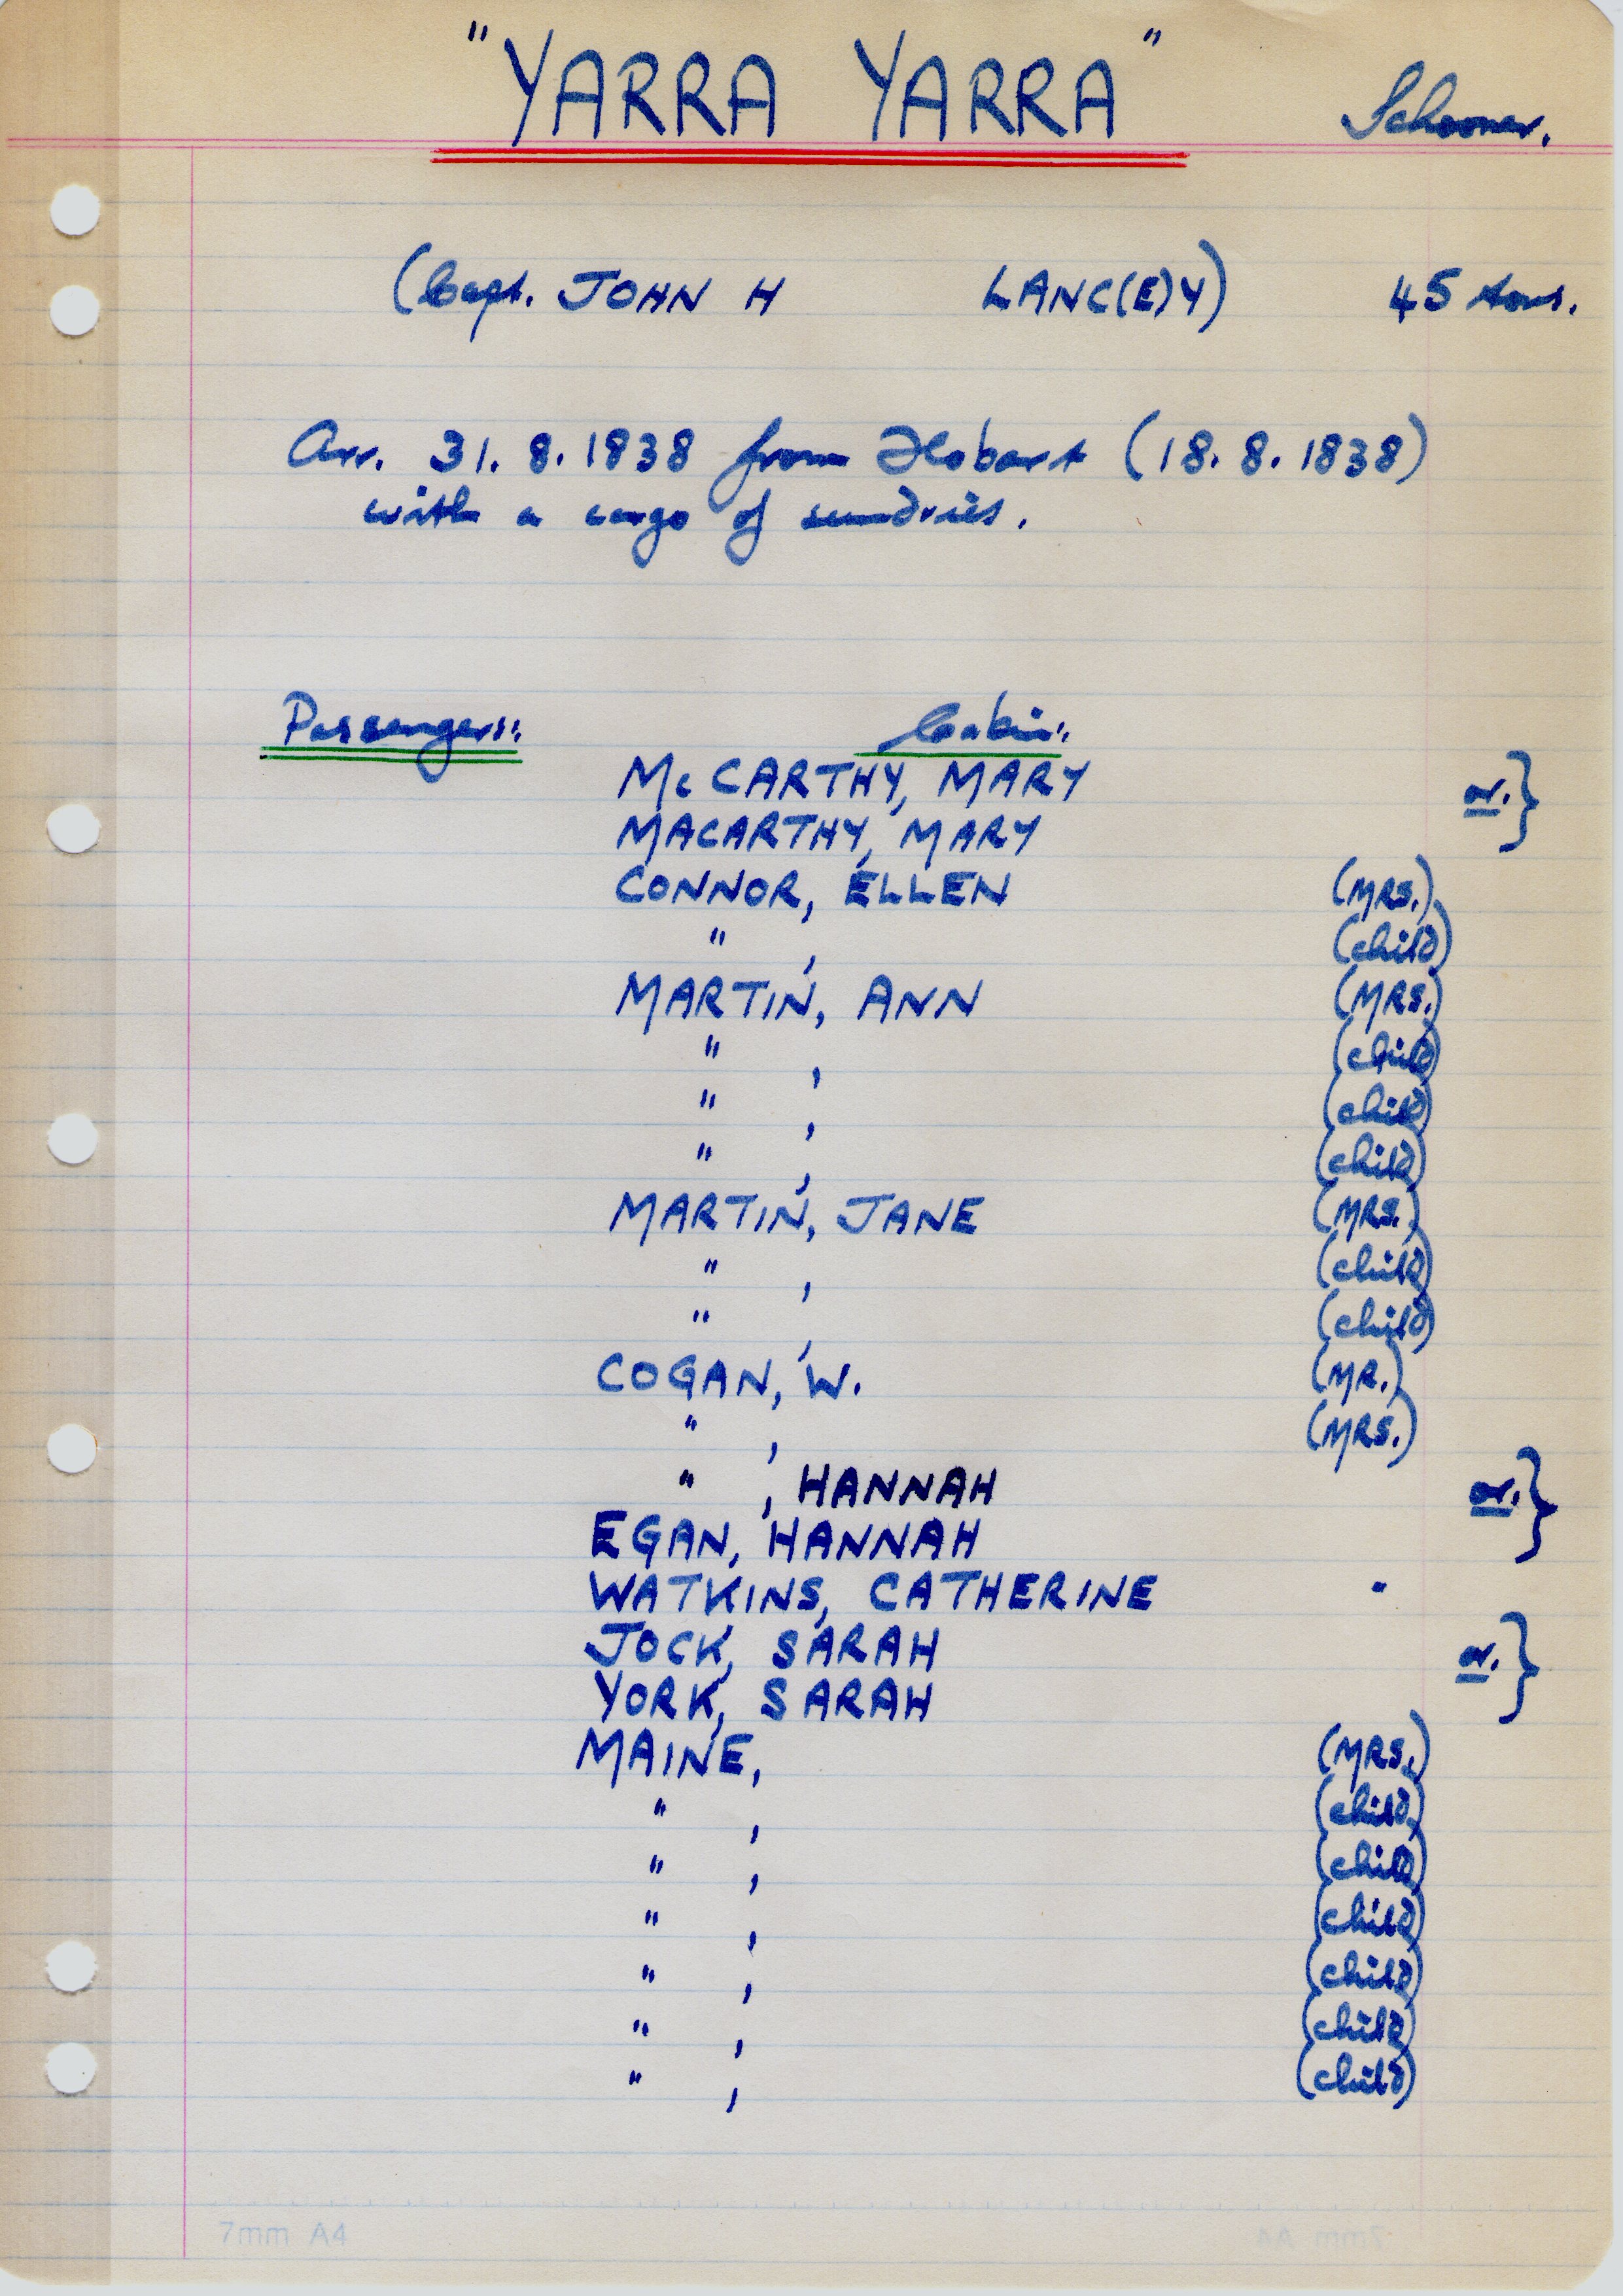 "YARRA YARRA" Schooner.
(Capt. JOHN H LANC(E)Y) 45 tons.
Arr. 31.8.1838 from Hobart (18.8.1838)
with a cargo of sundries.
Passengers:
Cabin:
McCARTHY, MARY or. }
MACARTHY, MARY
CONNOR, ELLEN (MRS.)
" , (child)
MARTIN, ANN (MRS.)
" , (child)
" , (child)
" , (child)
MARTIN, JANE (MRS.)
" , (child)
" , (child)
COGAN, W. (MR.)
" , (MRS.)
" , HANNAH or. }
EGAN, HANNAH
WATKINS, CATHERINE
JOCK, SARAH or. }
YORK, SARAH
MAINE, (MRS.)
" , (child)
" , (child)
" , (child)
" , (child)
" , (child)
" , (child)
7mm A4